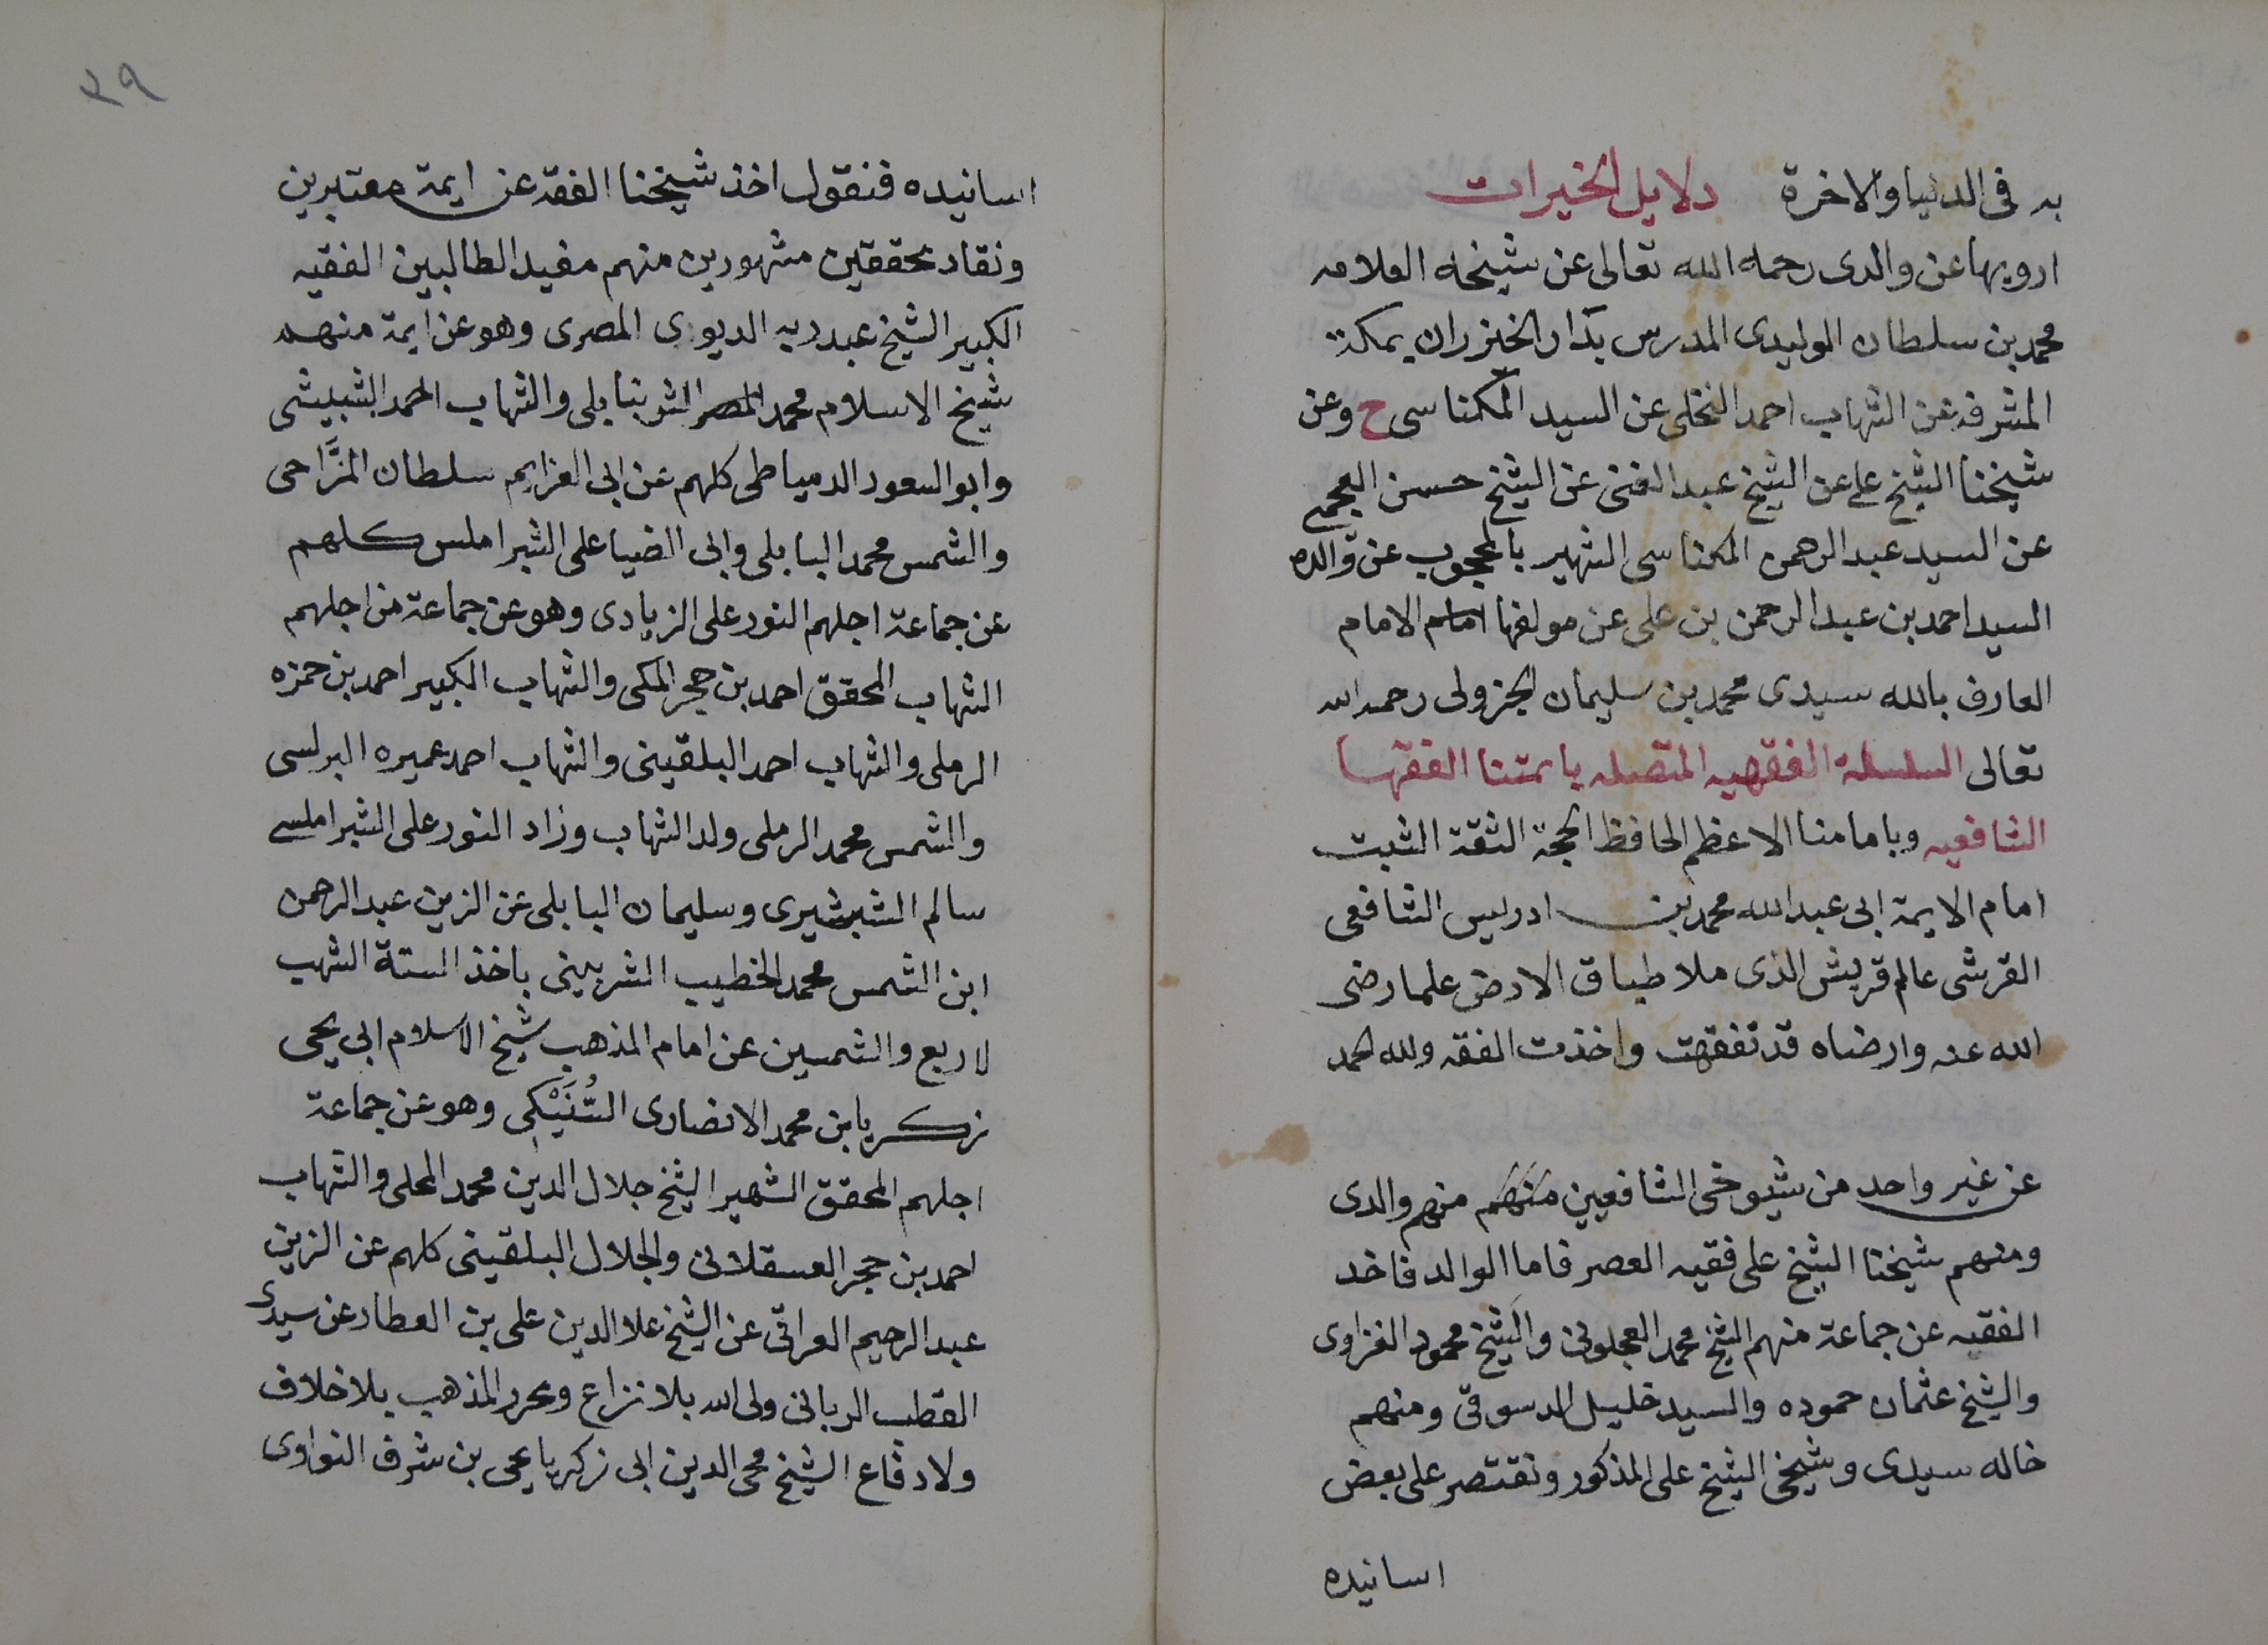 به فى الدنيا والاخرة دلايل الخيرات
ارويها عن والدى رحمه الله تعالى عن شيخه العلامه
محمد بن سلطان الوليدى المدرس بدار الخنزران بمكة
المشرفه عن الشهاب احمد النخلى عن السيد المكناسى ح وعن
شيخنا الشيخ على عن الشيخ عبد الغنى عن الشيخ حسن العجمى
عن السيد عبد الرحمن المكناسى الشهير بالمحجوب عن والده
السيد احمد بن عبد الرحمن بن على عن مولفها امام الامام
العارف بالله سيدى محمد بن سليمان الجزولى رحمه الله
تعالى السلسلة الفقهيه المتصله بايمتنا الفقها
الشافعيه وبامامنا الاعظم الحافظ الحجة الثقة الثبت
امام الايمة ابى عبد الله محمد بن ادريس الشافعى
القرشى عالم قريش الذى ملا طباق الارض علما رضى
الله عنه وارضاه قد تفقهت واخذت الفقه ولله الحمد
عن غير واحد من شيوخى الشافعين منهم منهم والدى
ومنهم شيخنا الشيخ على فقيه العصر فاما الوالد فاخد
الفقيه عن جماعة منهم الشيخ محمد العجلونى والشيخ محمود الغزاوى
والشيخ عثمان حموده والسيد خليل الدسوقى ومنهم
خاله سيدى وشيخى الشيخ على المذكور ونقتصر على بعض
اسانيده
٢٩
اسانيده فنقول اخذ شيخنا الفقه عن ايمة معتبرين
ونقاد محققين مشهورين منهم مفيد الطالبين الفقيه
الكبير الشيخ عبد ربه الديوى المصرى وهو عن ايمة منهم
شيخ الاسلام محمد المصر الشرنبابلى والشهاب احمد البشبيشى
وابو السعود الدمياطى كلهم عن ابى العزايم سلطان المزَّاحى
والشمس محمد البابلى وابى الضيا على الشبراملس كلهم
عن جماعة اجلهم النور على الزيادى وهو عن جماعة من اجلهم
الشهاب المحقق احمد بن حجر المكى والشهاب الكبير احمد بن حمزه
الرملى والشهاب احمد البلقينى والشهاب احمد عميره البرلسى
والشمس محمد الرملى ولد الشهاب وزاد النور على الشبراملسى
سالم الشبشيرى وسليمان البابلى عن الزين عبد الرحمن
ابن الشمس محمد الخطيب الشربينى باخذ الستة الشهب
لاربع والشمسين عن امام المذهب شيخ الاسلام ابى يحى
زكريا بن محمد الانصارى السُّنَيْكى وهو عن جماعة
اجلهم المحقق الشهير الشيخ جلال الدين محمد المحلى والشهاب
احمد بن حجر العسقلانى والجلال البلقينى كلهم عن الزين
عبد الرحيم العراقى عن الشيخ علا الدين على بن العطار عن سيدى
القطب الربانى ولى الله بلا نزاع ومحرر المذهب بلا خلاف
ولا دفاع الشيخ محى الدين ابى زكريا يحى بن شرف النواوى